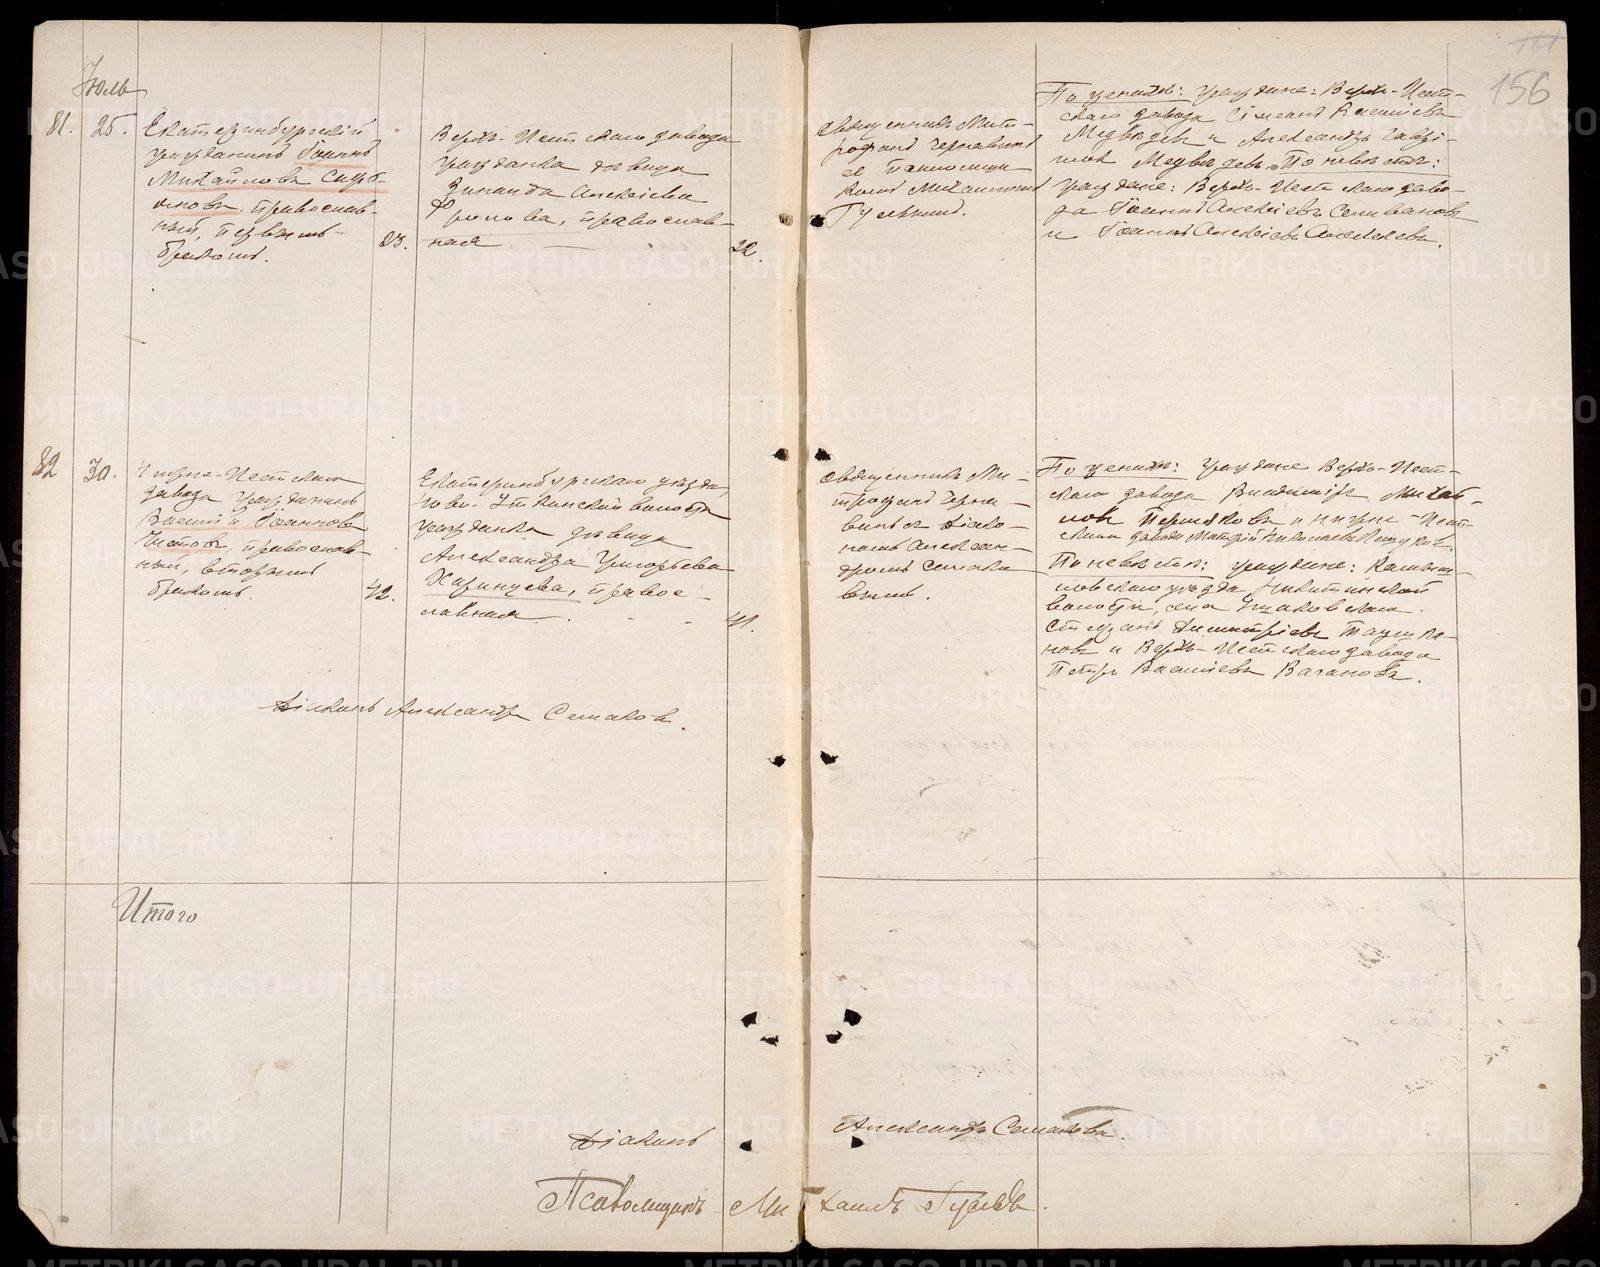 156
Іюль
81.
25.
Екатеринбургскій
гражданинъ Іоаннъ
Михайловъ
православ-
ный, первымъ
бракомъ.
23.
Верхъ-Исетскаго завода
гражданка дѣвица
Зинаида Алексіева
Фролова, православ-
ная
22.
Священникъ Мит-
рофанъ Чернавинъ
съ Псаломщи-
комъ Михаиломъ
Гусевымъ.
По женихѣ: граждане: Верхъ-Исет-
скаго завода Симеонъ Василіевъ
Медвѣдевъ и Александръ Гаврі-
иловъ Медвѣдевъ. По невѣстѣ:
граждане: Верхъ-Исетскаго заво-
да Іоаннъ Алексіевъ Селивановъ
и Іоаннъ Алексіевъ Алексѣевъ.
82
30.
Исетскаго
завода гражданинъ
Василій Іоанновъ
Чистовъ, православ-
ный, вторымъ
бракомъ.
42.
Екатеринбургскаго уѣзда,
Ново-Уткинской волости
гражданка дѣвица
Александра Григорьева
Харинцева, правос-
лавная.
41.
Священникъ Ми-
трофанъ Черна-
винъ съ діако-
номъ Алексан-
дромъ Семако-
вымъ.
По женихѣ: граждане Верхъ-Исет-
скаго завода Владиміръ Михаи-
ловъ и Нижне-Исет-
скаго завода Николаевъ
По невѣстѣ: граждане: Камыш-
ловскаго уѣзда Никитинской
волости, села
Стефанъ Димитріевъ
новъ и Верхъ-Исетскаго завода
Петръ Василіевъ Вагановъ.
Діаконъ Александръ Семаковъ.
Итого
Діаконъ Александръ Семаковъ.
Псаломщикъ Михаилъ Гусевъ.
METRIKI.GASO-URAL.RU